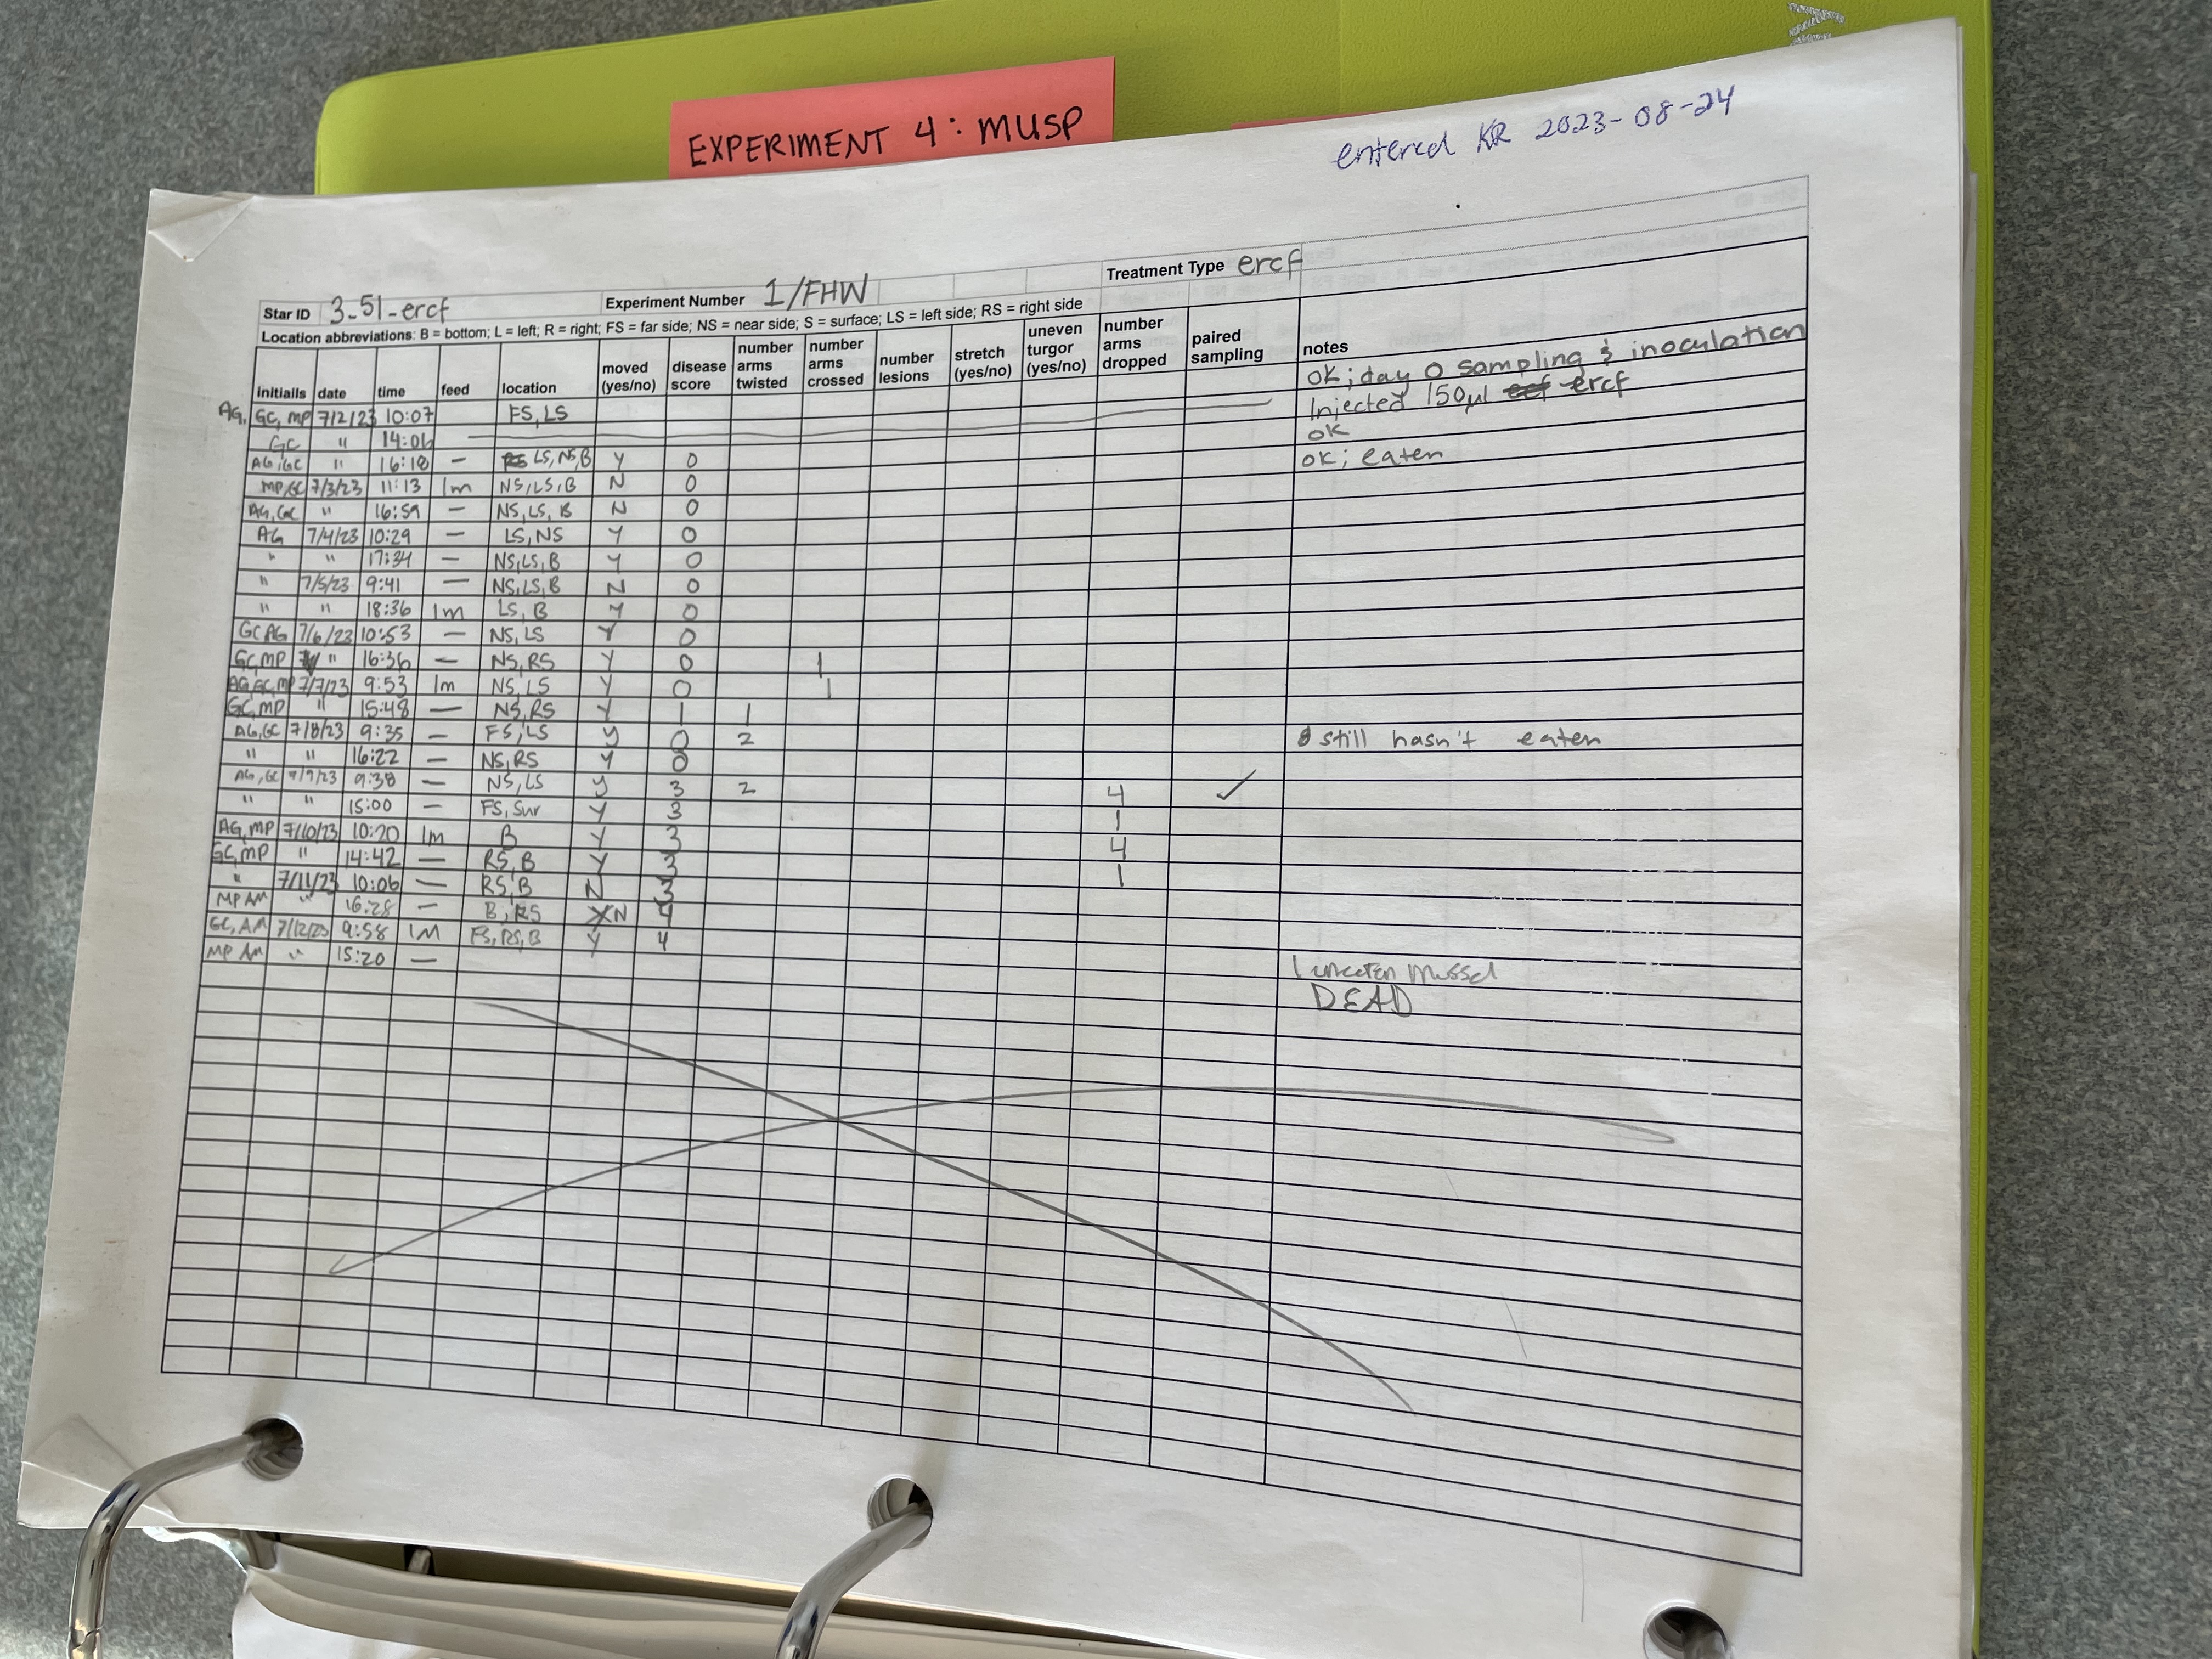 EXPERIMENT 4: MUSP
entered KR 2023-08-24
Star ID 3-51-ercf Experiment Number 1/FHW Treatment Type ercf
Location abbreviations: B = bottom; L = left; R = right; FS = far side; NS = near side; S = surface; LS = left side; RS = right side
initials date time feed location moved (yes/no) disease score number arms twisted number arms crossed number lesions stretch (yes/no) uneven turgor (yes/no) number arms dropped paired sampling notes
AG, GC, MP 7/2/23 10:07 FS, LS OK; day 0 sampling & inoculation
GC " 14:06 Injected 150µl ercf
AG, GC " 16:18 — LS, NS, B Y 0 OK
MP, GC 7/3/23 11:13 1m NS, LS, B N 0 OK; eaten
AG, GC " 16:59 — NS, LS, B N 0
AG 7/4/23 10:29 — LS, NS Y 0
" " 17:34 — NS, LS, B Y 0
" 7/5/23 9:41 — NS, LS, B N 0
" " 18:36 1m LS, B Y 0
GC AG 7/6/23 10:53 — NS, LS Y 0
GC, MP " 16:36 — NS, RS Y 0 1
AG, GC, MP 7/7/23 9:53 1m NS, LS Y 0 1
GC, MP " 15:48 — NS, RS Y 1 1
AG, GC 7/8/23 9:35 — FS, LS y 0 2 still hasn't eaten
" " 16:22 — NS, RS Y 0
AG, GC 7/9/23 9:38 — NS, LS y 3 2 4 ✓
" " 15:00 — FS, Sur Y 3 1
AG, MP 7/10/23 10:20 1m B Y 3 4
GC, MP " 14:42 — RS, B Y 3 1
" 7/11/23 10:06 — RS, B N 3
MP AM " 16:28 — B, RS N 4
GC, AM 7/12/23 9:58 1M FS, RS, B Y 4
MP AM " 15:20 — 1 uneaten mussel
DEAD